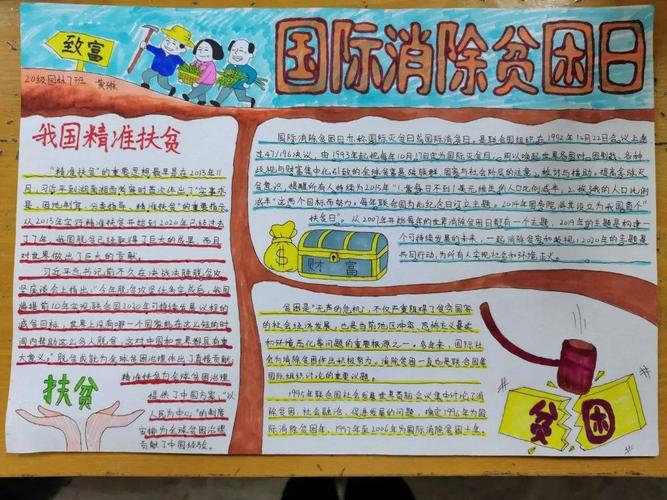 致富
国际消除贫困日
20级园林7班 黄琳
我国精准扶贫
"精准扶贫"的重要思想最早是在2013年11
月,习近平到湖南湘西考察时首次作出了"实事求
是,因地制宜,分类指导,精准扶贫"的重要指示。
从2013年实行精准扶贫开始到2020年已经过去
了7年,我国脱贫已经取得了巨大的成果,而且
对世界做出了巨大的贡献。
习近平总书记前不久在决战决胜脱贫攻
坚座谈会上指出:"今年脱贫攻坚任务完成后,我国
将提前10年实现联合国2030年可持续发展议程的
减贫目标,世界上没有哪一个国家能在这么短的时
间内帮助这么多人脱贫,这对中国和世界都具有重
大意义。"脱贫成就为全球贫困治理作出了直接贡献,
精准扶贫为全球贫困治理
提供了中国方案,"以
人民为中心"的制度
安排为全球贫困治理
贡献了中国经验。
扶贫
国际消除贫困日亦称国际灭贫日或国际消贫日,是联合国组织在1992年12月22日会议上通
过47/196决议,由1993年起把每年10月17日定为国际灭贫日,用以唤起世界各国对
段与财富集中化引致的全球贫富悬殊族群、国家与社会阶层的注意、检讨与援助,
灭贫意识,提醒所有人持续为2015年"1.靠每日不到1美元维生的人口比例减半,2.挨饿的人口比例
减半"这两个目标而努力,每年联合国为此纪念日订立主题。2014年国务院
扶贫日"。从2007年开始每年的世界消除贫困日都有一个主题,2019年的主题是构建一
个可持续发展的未来,一起消除贫穷,2020年的主题是
共同行动,为所有人实现社会和环境正义。
财富
贫困是"无声的危机",不仅严重阻碍了贫穷国家
的社会经济发展,也是当前地区冲突、恐怖主义蔓延
和环境恶化等问题的重要根源之一。多年来,国际社
会为消除贫困作出积极努力。消除贫困一直也是联合国等
国际组织讨论的重要议题。
1995年联合国社会发展世界首脑会议集中讨论了消
除贫困、社会融治、促进发展的问题,确定1996年为国
际消除贫困年,1997年至2006年为国际消除贫困十年。
贫困